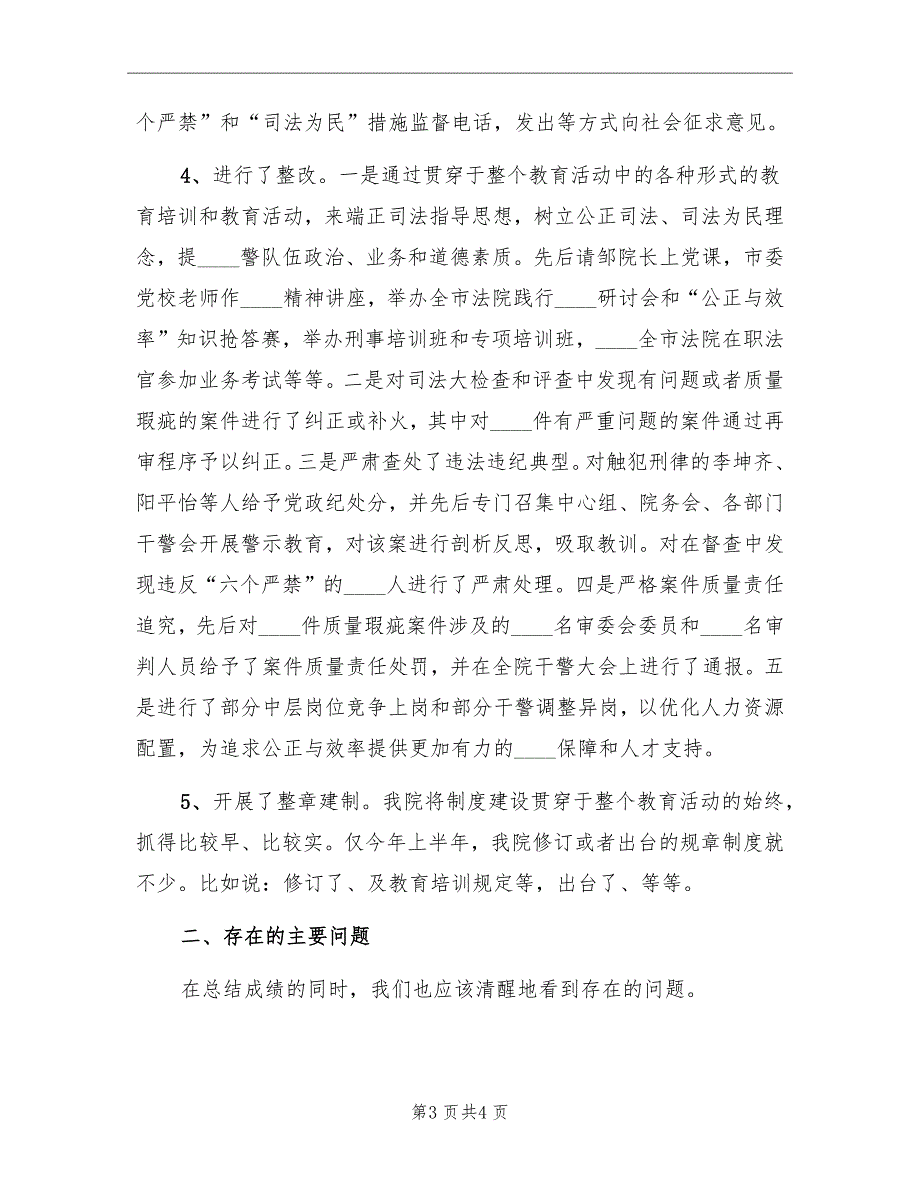 个严禁”和“司法为民”措施监督电话，发出等方式向社会征求意见。
4、进行了整改。一是通过贯穿于整个教育活动中的各种形式的教
育培训和教育活动，来端正司法指导思想，树立公正司法、司法为民理
念，提____警队伍政治、业务和道德素质。先后请邹院长上党课，市委
党校老师作____精神讲座，举办全市法院践行____研讨会和“公正与效
率”知识抢答赛，举办刑事培训班和专项培训班，____全市法院在职法
官参加业务考试等等。二是对司法大检查和评查中发现有问题或者质量
瑕疵的案件进行了纠正或补火，其中对____件有严重问题的案件通过再
审程序予以纠正。三是严肃查处了违法违纪典型。对触犯刑律的李坤齐、
阳平怡等人给予党政纪处分，并先后专门召集中心组、院务会、各部门
干警会开展警示教育，对该案进行剖析反思，吸取教训。对在督查中发
现违反“六个严禁”的____人进行了严肃处理。四是严格案件质量责任
追究，先后对____件质量瑕疵案件涉及的____名审委会委员和____名审
判人员给予了案件质量责任处罚，并在全院干警大会上进行了通报。五
是进行了部分中层岗位竞争上岗和部分干警调整异岗，以优化人力资源
配置，为追求公正与效率提供更加有力的____保障和人才支持。
5、开展了整章建制。我院将制度建设贯穿于整个教育活动的始终，
抓得比较早、比较实。仅今年上半年，我院修订或者出台的规章制度就
不少。比如说：修订了、及教育培训规定等，出台了、等等。
二、存在的主要问题
在总结成绩的同时，我们也应该清醒地看到存在的问题。
第3 页共4 页